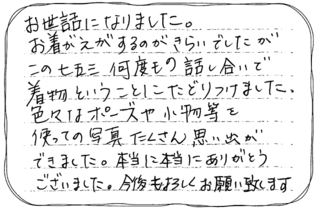 お世話になりました。
お着がえがするのがきらいでしたが
この七五三 何度もの話し合いで
着物ということにこたどりつけました。
色々なポーズや小物等を
使っての写真たくさん思い出が
できました。本当に本当にありがとう
ございました。今後もよろしくお願い致します